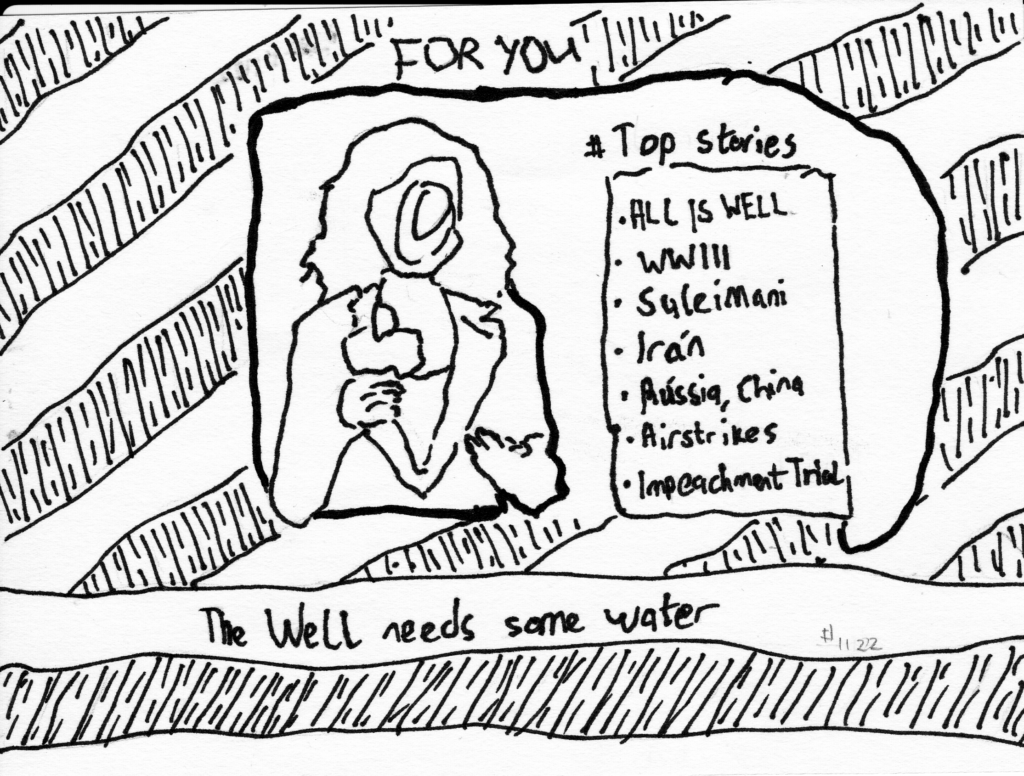 FOR YOU
# Top stories
• ALL IS WELL
• WWIII
• Suleimani
• Iran
• Russia, China
• Airstrikes
• Impeachment Trial
The Well needs some water
# 1122